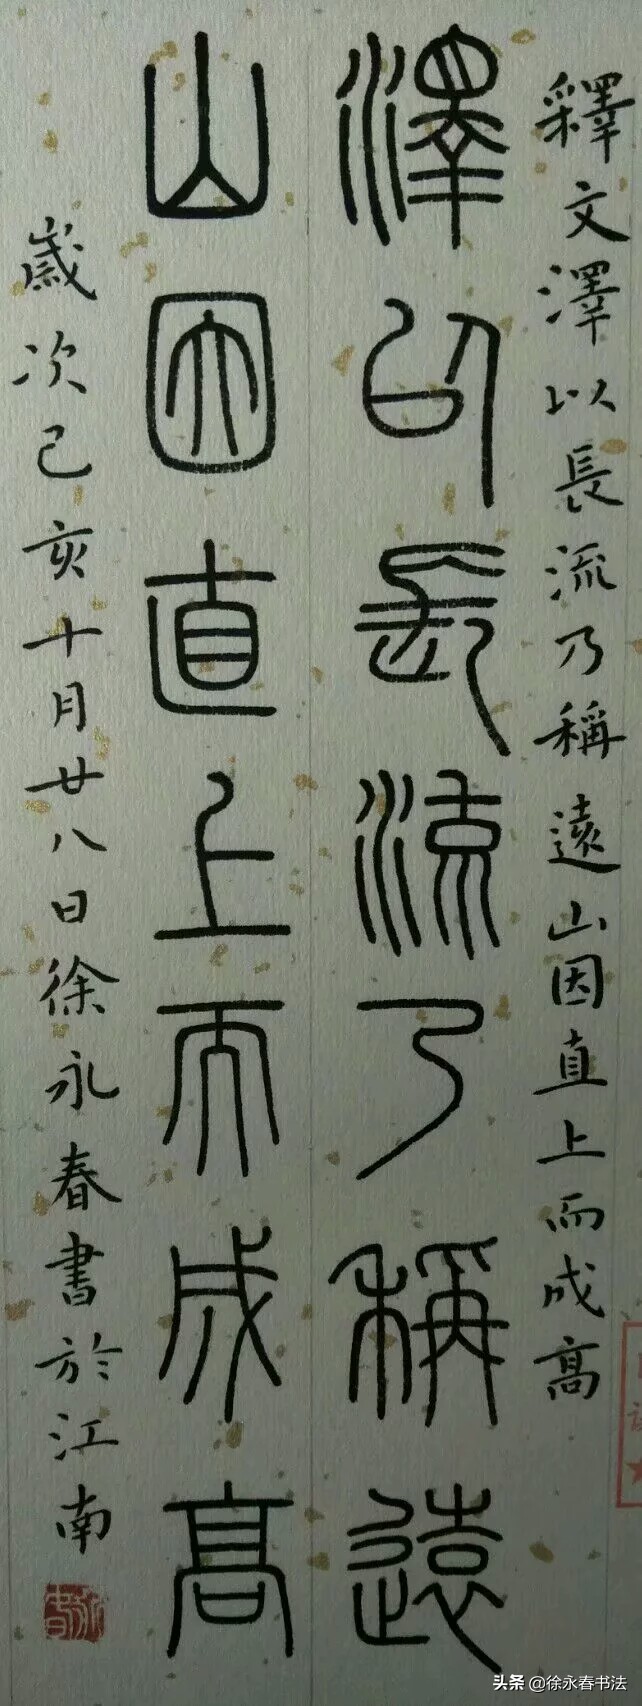 釋文澤以長流乃稱遠山因直上而成高
澤以長流乃稱遠
山因直上而成高
歲次己亥十月廿八日徐永春書於江南
永春
头条 @徐永春书法